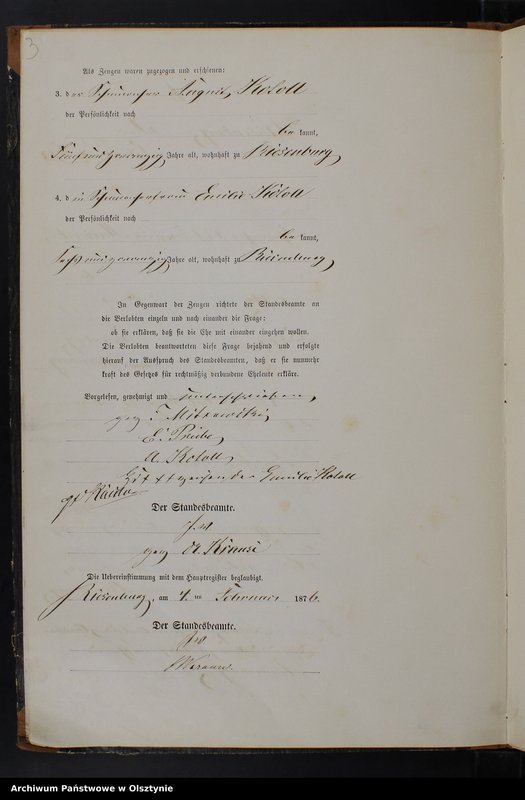 3
Als Zeugen waren zugezogen und erschienen:
3. der Schuhmacher August Kotoll
der Persönlichkeit nach
be kannt,
Fünf und zwanzig Jahre alt, wohnhaft zu Riesenburg
4. d ie Schuhmacherfrau Emilie Kotoll
der Persönlichkeit nach
be kannt,
Sechs und zwanzig Jahre alt, wohnhaft zu Riesenburg
In Gegenwart der Zeugen richtete der Standesbeamte an
die Verlobten einzeln und nach einander die Frage:
ob sie erklären, daß sie die Ehe mit einander eingehen wollen.
Die Verlobten beantworteten diese Frage bejahend und erfolgte
hierauf der Ausspruch des Standesbeamten, daß er sie nunmehr
kraft des Gesetzes für rechtmäßig verbundene Eheleute erkläre.
Vorgelesen, genehmigt und unterschrieben,
gez
E.
A. Kotoll
der Emilie Kotoll
Der Standesbeamte.
gez
Die Uebereinstimmung mit dem Hauptregister beglaubigt.
Riesenburg, am ten Februar 1876.
Der Standesbeamte.
Archiwum Państwowe w Olsztynie